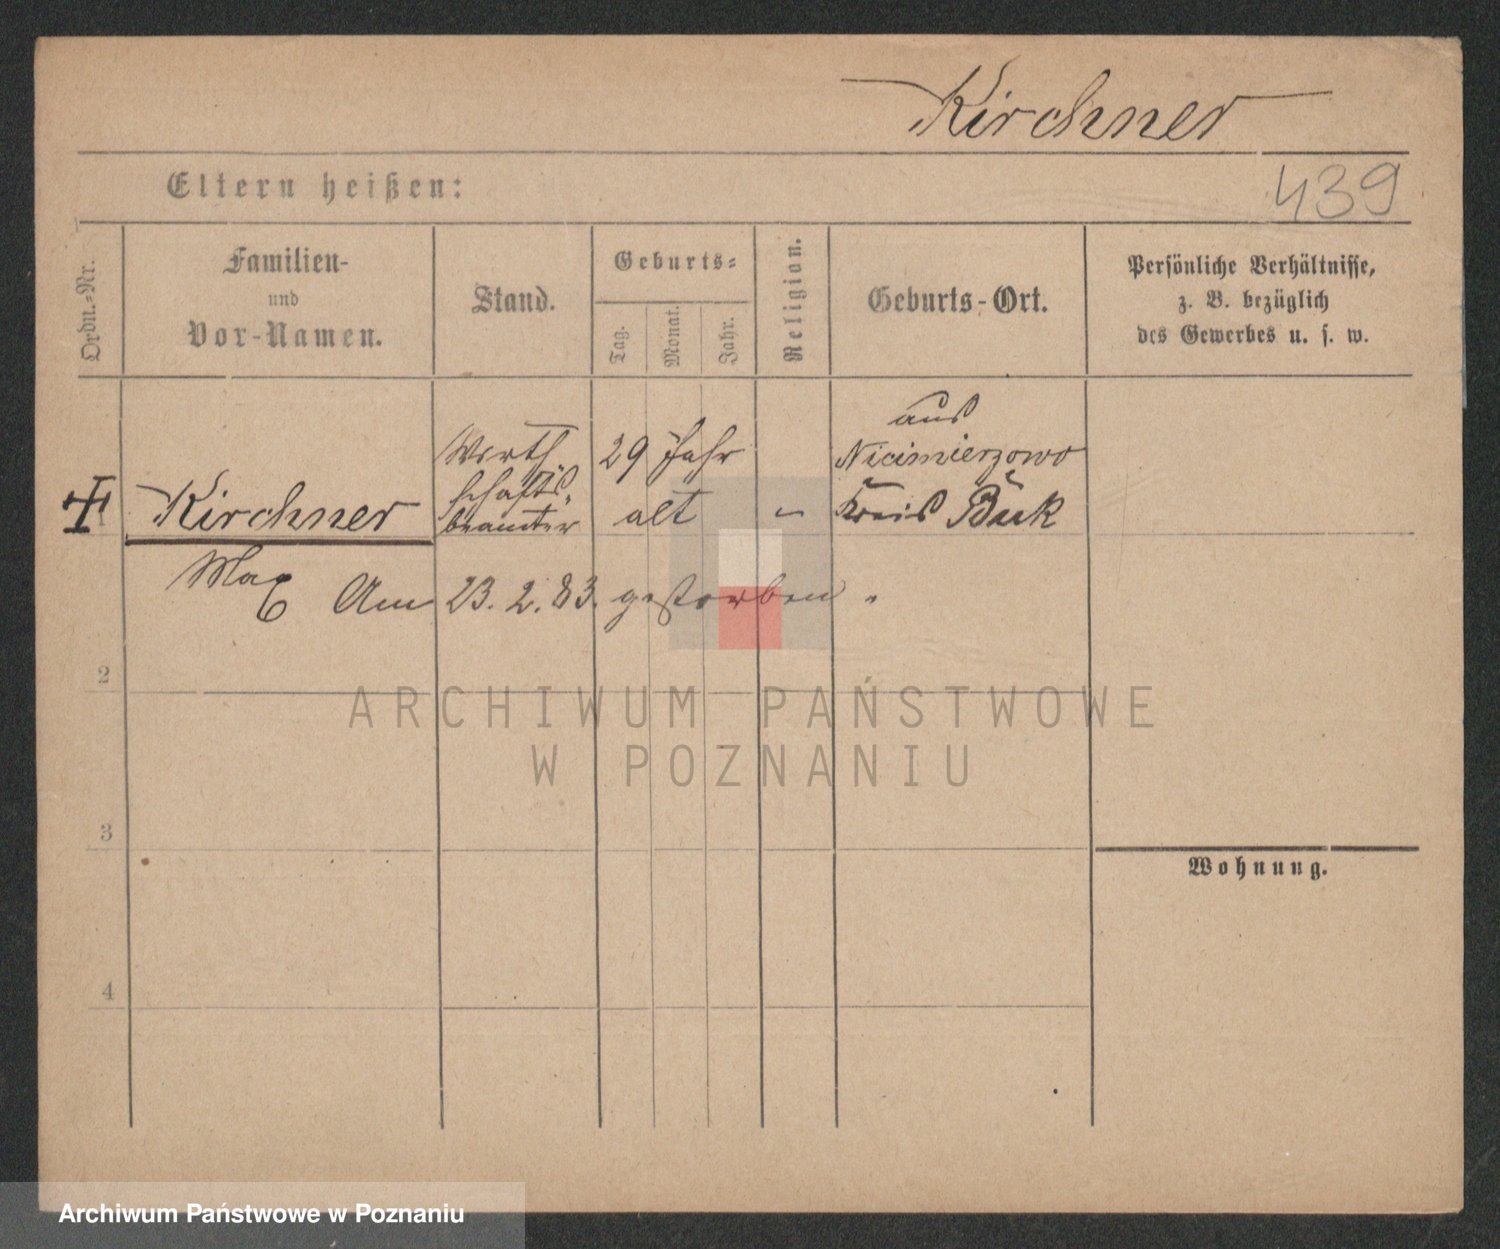 Kirchner
439
Eltern heißen:
Ordn.-Nr.
Familien-
und
Vor-Namen.
Stand.
Geburts-
Tag.
Monat.
Jahr.
Religion.
Geburts-Ort.
Persönliche Verhältnisse,
z. B. bezüglich
des Gewerbes u. s. w.
1
Kirchner
Max
Wirth-
schafts-
beamter
29 Jahr
alt
aus
Niecimierzowo
Kreis Buk
Am 23. 2. 83. gestorben.
2
3
4
Wohnung.
ARCHIWUM PAŃSTWOWE
W POZNANIU
Archiwum Państwowe w Poznaniu